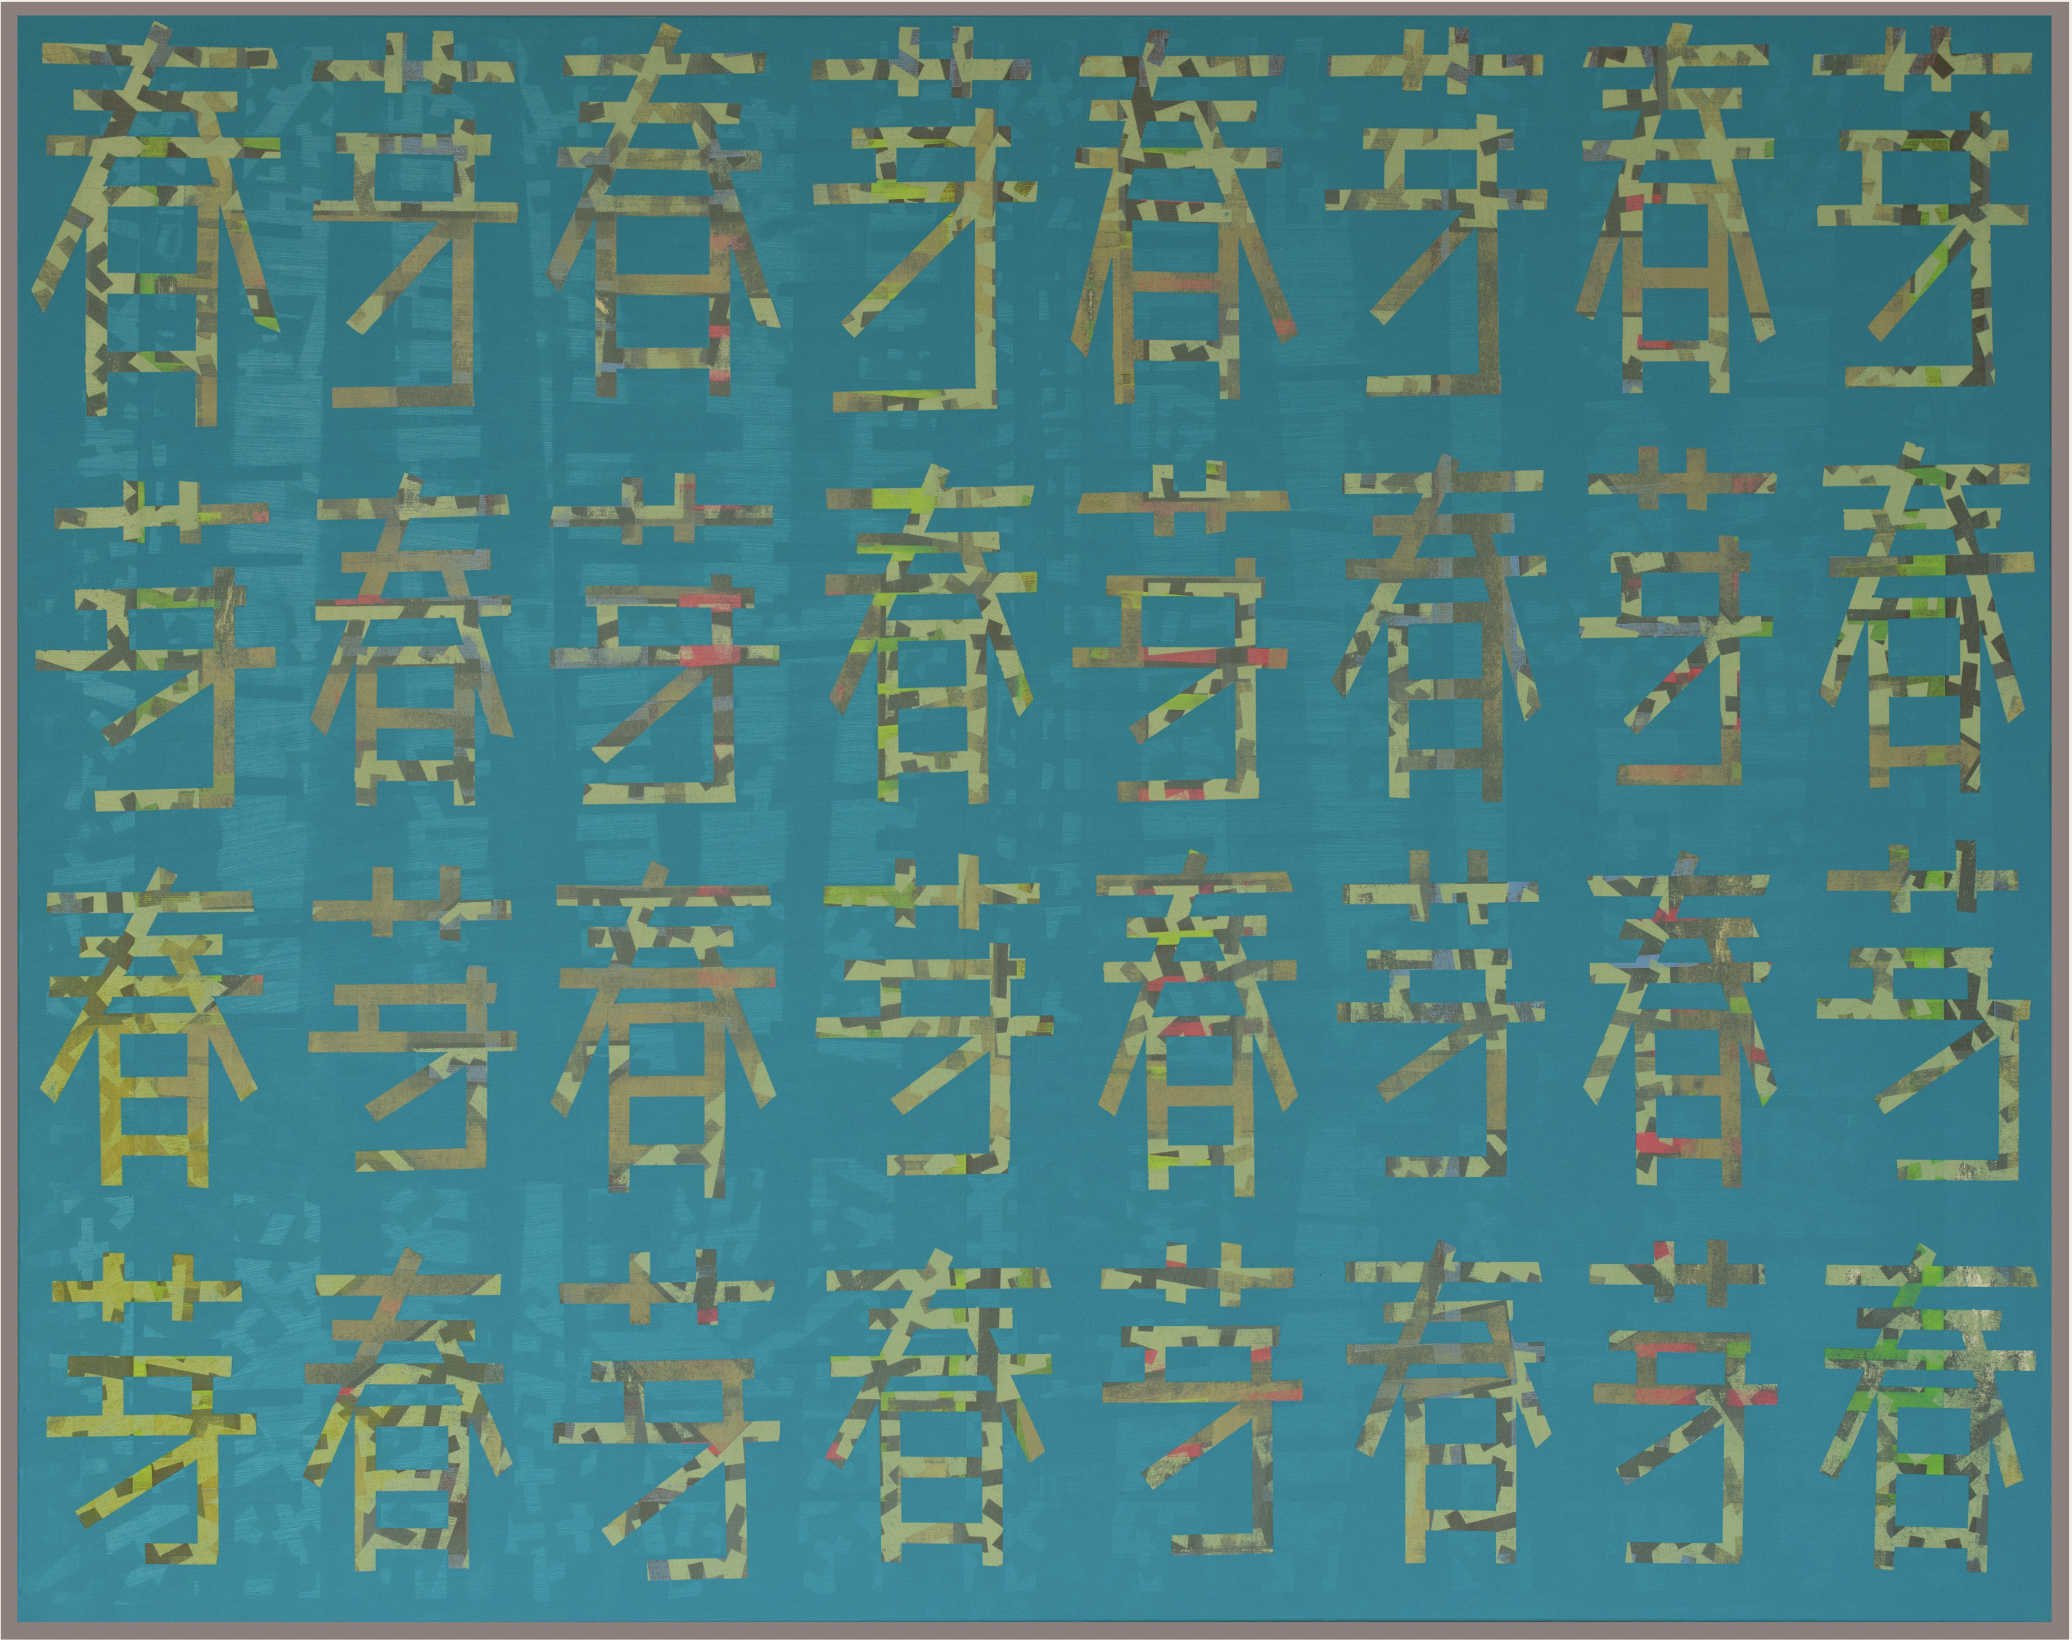 春芽春芽春芽春芽
芽春芽春芽春芽春
春芽春芽春芽春芽
芽春芽春芽春芽春